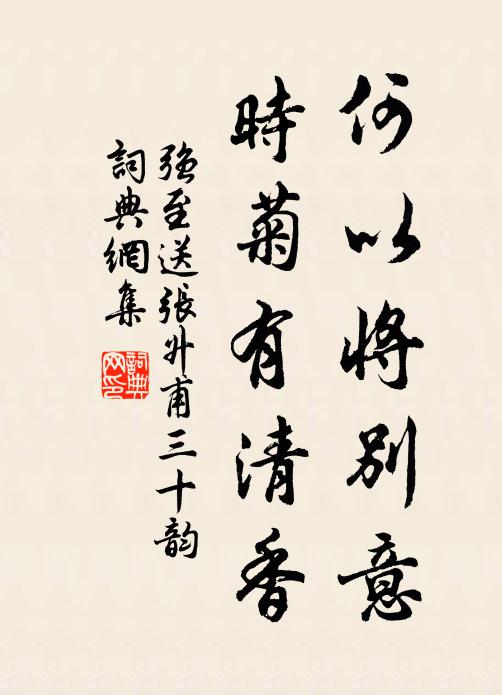 何以將別意
時菊有清香
強至送張升甫三十韵
詞典網集
詞典
网印